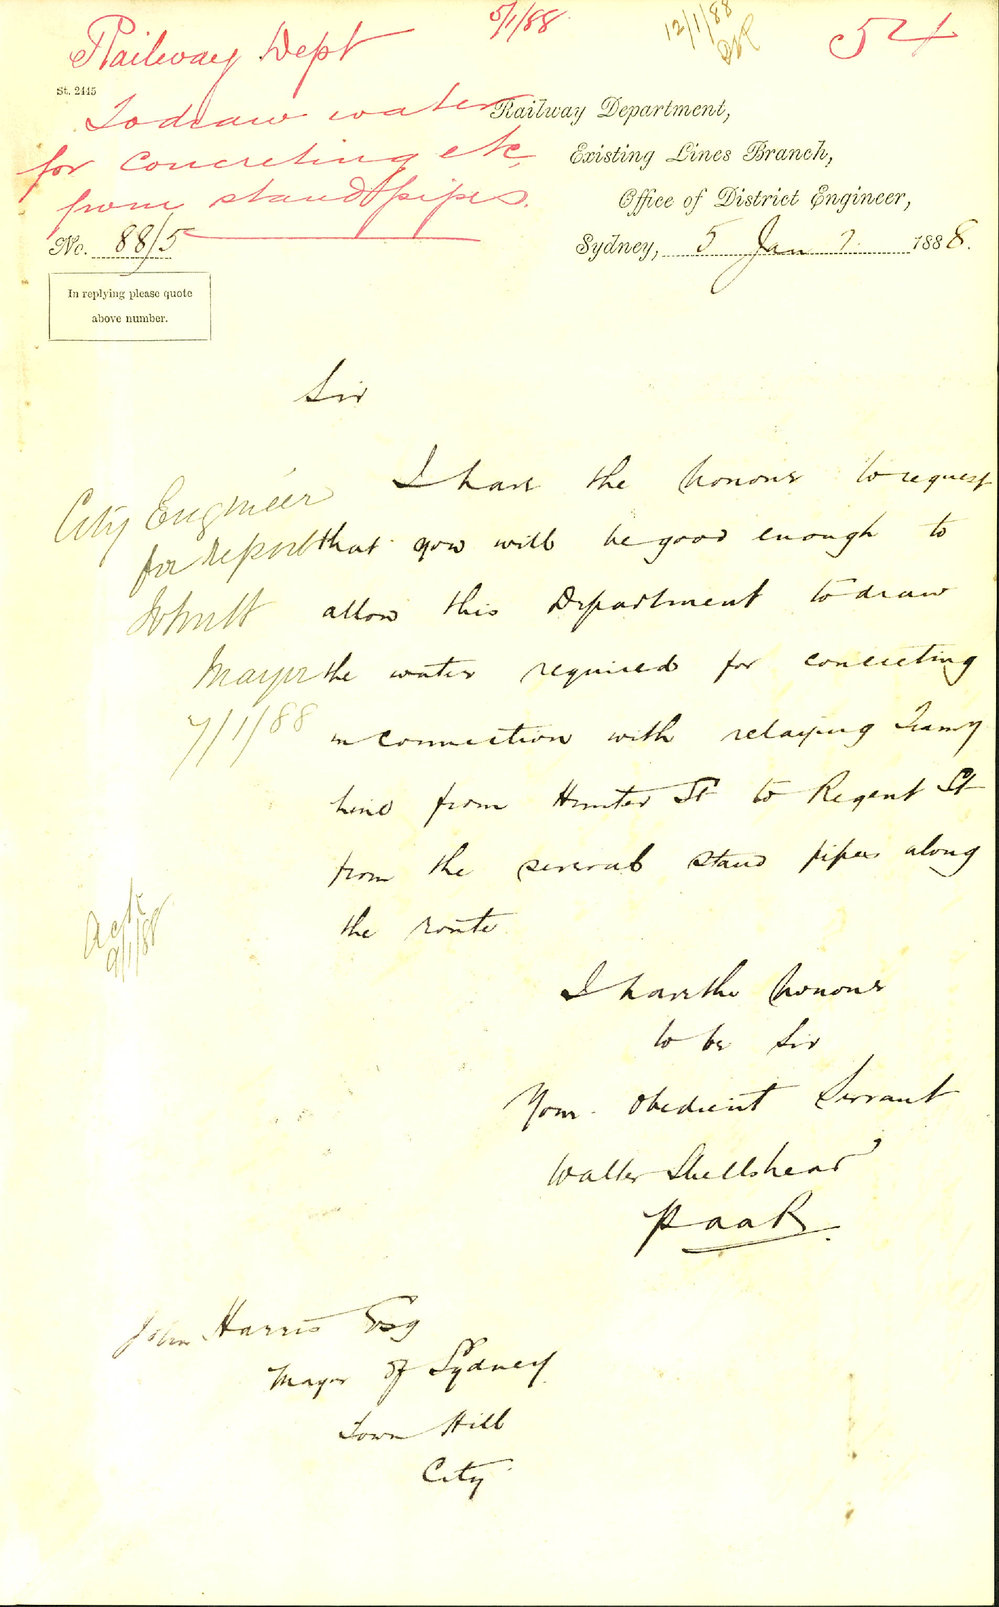 Railway Dept
5/1/88
12/1/88
54
St. 2445
To draw water
for concreting etc
from standpipes.
Railway Department,
Existing Lines Branch,
Office of District Engineer,
No. 88/5
Sydney, 5 Jany. 1888.
In replying please quote
above number.
Sir
I have the honour to request
that you will be good enough to
allow this Department to draw
the water required for concreting
in connection with relaying Tramy
line from Hunter St to Regent St
from the several stand pipes along
the route
City Engineer
for report
John H
Mayor
7/1/88
9/1/88
I have the honour
to be Sir
Your Obedient Servant
Walter Shellshear
John Harris Esq
Mayor of Sydney
Town Hill
City